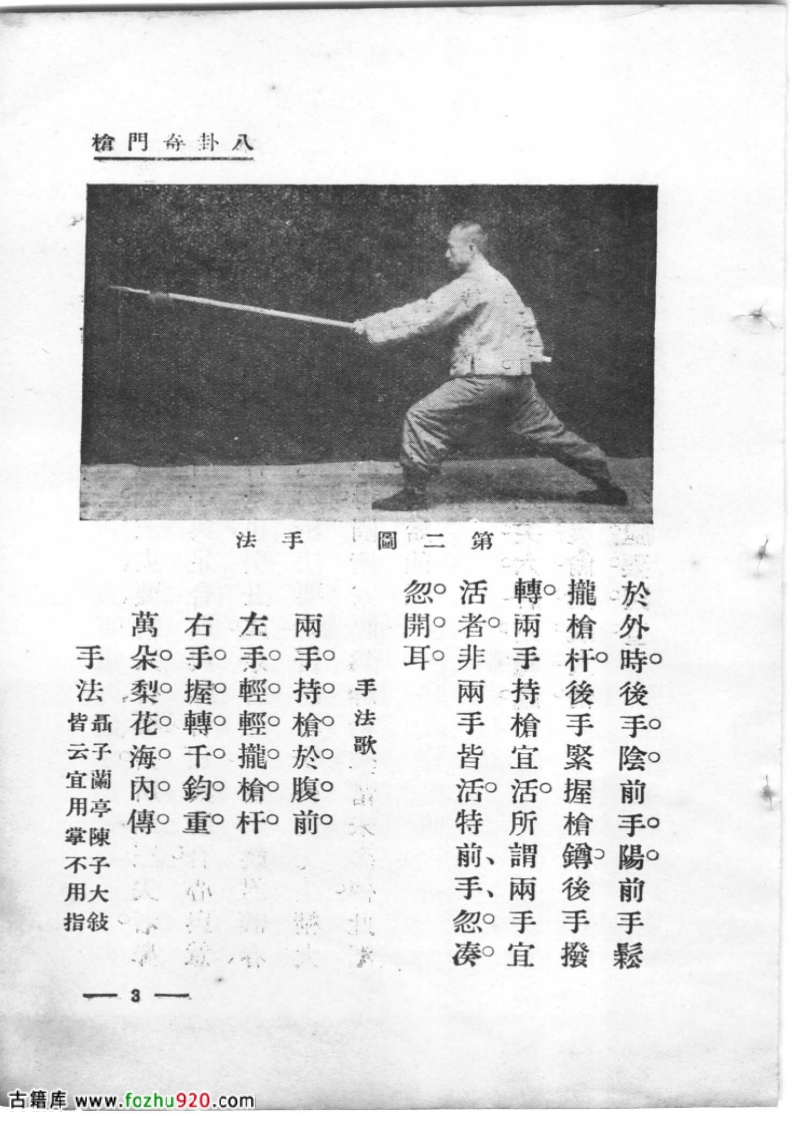 八卦奇門槍
第二圖　手法
於外時。後手。陰。前手。陽。前手鬆
攏槍杆。後手緊握槍鐏。後手撥
轉。兩手持槍宜活。所謂兩手宜
活者。非兩手皆活。特前、手、忽。湊。
忽。開。耳。
手法歌
兩手。持。槍。於。腹。前。
左手。輕。輕。攏。槍。杆。
右手。握。轉。千。鈞。重。
萬朵。梨。花。海。內。傳。
手法
聶子蘭亭陳子大敍
皆云宜用掌不用指
3
古籍库 www.fozhu920.com